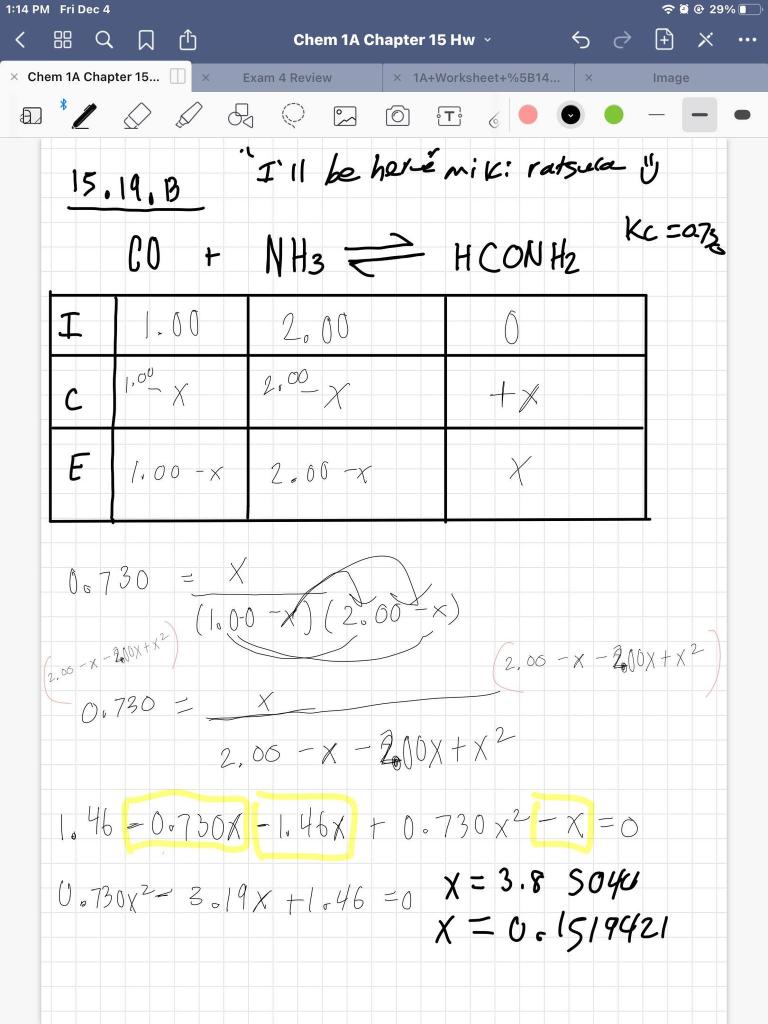 1:14 PM Fri Dec 4
29%
Chem 1A Chapter 15 Hw
Chem 1A Chapter 15...
Exam 4 Review
1A+Worksheet+%5B14...
Image
"I'll be here" miki ratsula
15.19.B
Kc = 0.73
CO + NH3 ⇌ HCONH2
I 1.00 2.00 0
C 1.00 - x 2.00 - x + x
E 1.00 - x 2.00 - x x
0.730 = x
(1.00 - x) (2.00 - x)
(2.00 - x - 2.00x + x²)
(2.00 - x - 2.00x + x²)
0.730 = x
2.00 - x - 2.00x + x²
1.46 - 0.730x - 1.46x + 0.730x² - x = 0
0.730x² - 3.19x + 1.46 = 0
x = 3.8
x = 0.1519421